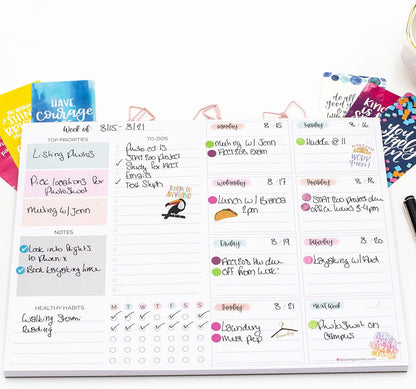 HAVE
Courage
do all
Week of: 8/15 - 8/21
TOP PRIORITIES
Listing Photos
Pick locations for
Photoshoot
Meeting w/ Jenn
NOTES
Look into flights
to Phoenix
Book Kayaking time
HEALTHY HABITS
M T W T F S S
Walking
Reading
TO-DOS
Photo edits
START 200 project
Study for
Emails
Text Steph
Monday 8 - 15
Meeting w/ Jenn
Exam
Tuesday 8 - 16
Huddle @ 11
WORK
Wednesday 8 - 17
Lunch w/ Brenca
2pm
Thursday 8 - 18
START 200 project due
Office Hours
Friday 8 - 19
due
OFF from work!
Saturday 8 - 20
Kayaking w/
Sunday 8 - 21
Laundry
Meal prep
Next Week
Photo Shoot on
Campus
bloomplanners.com